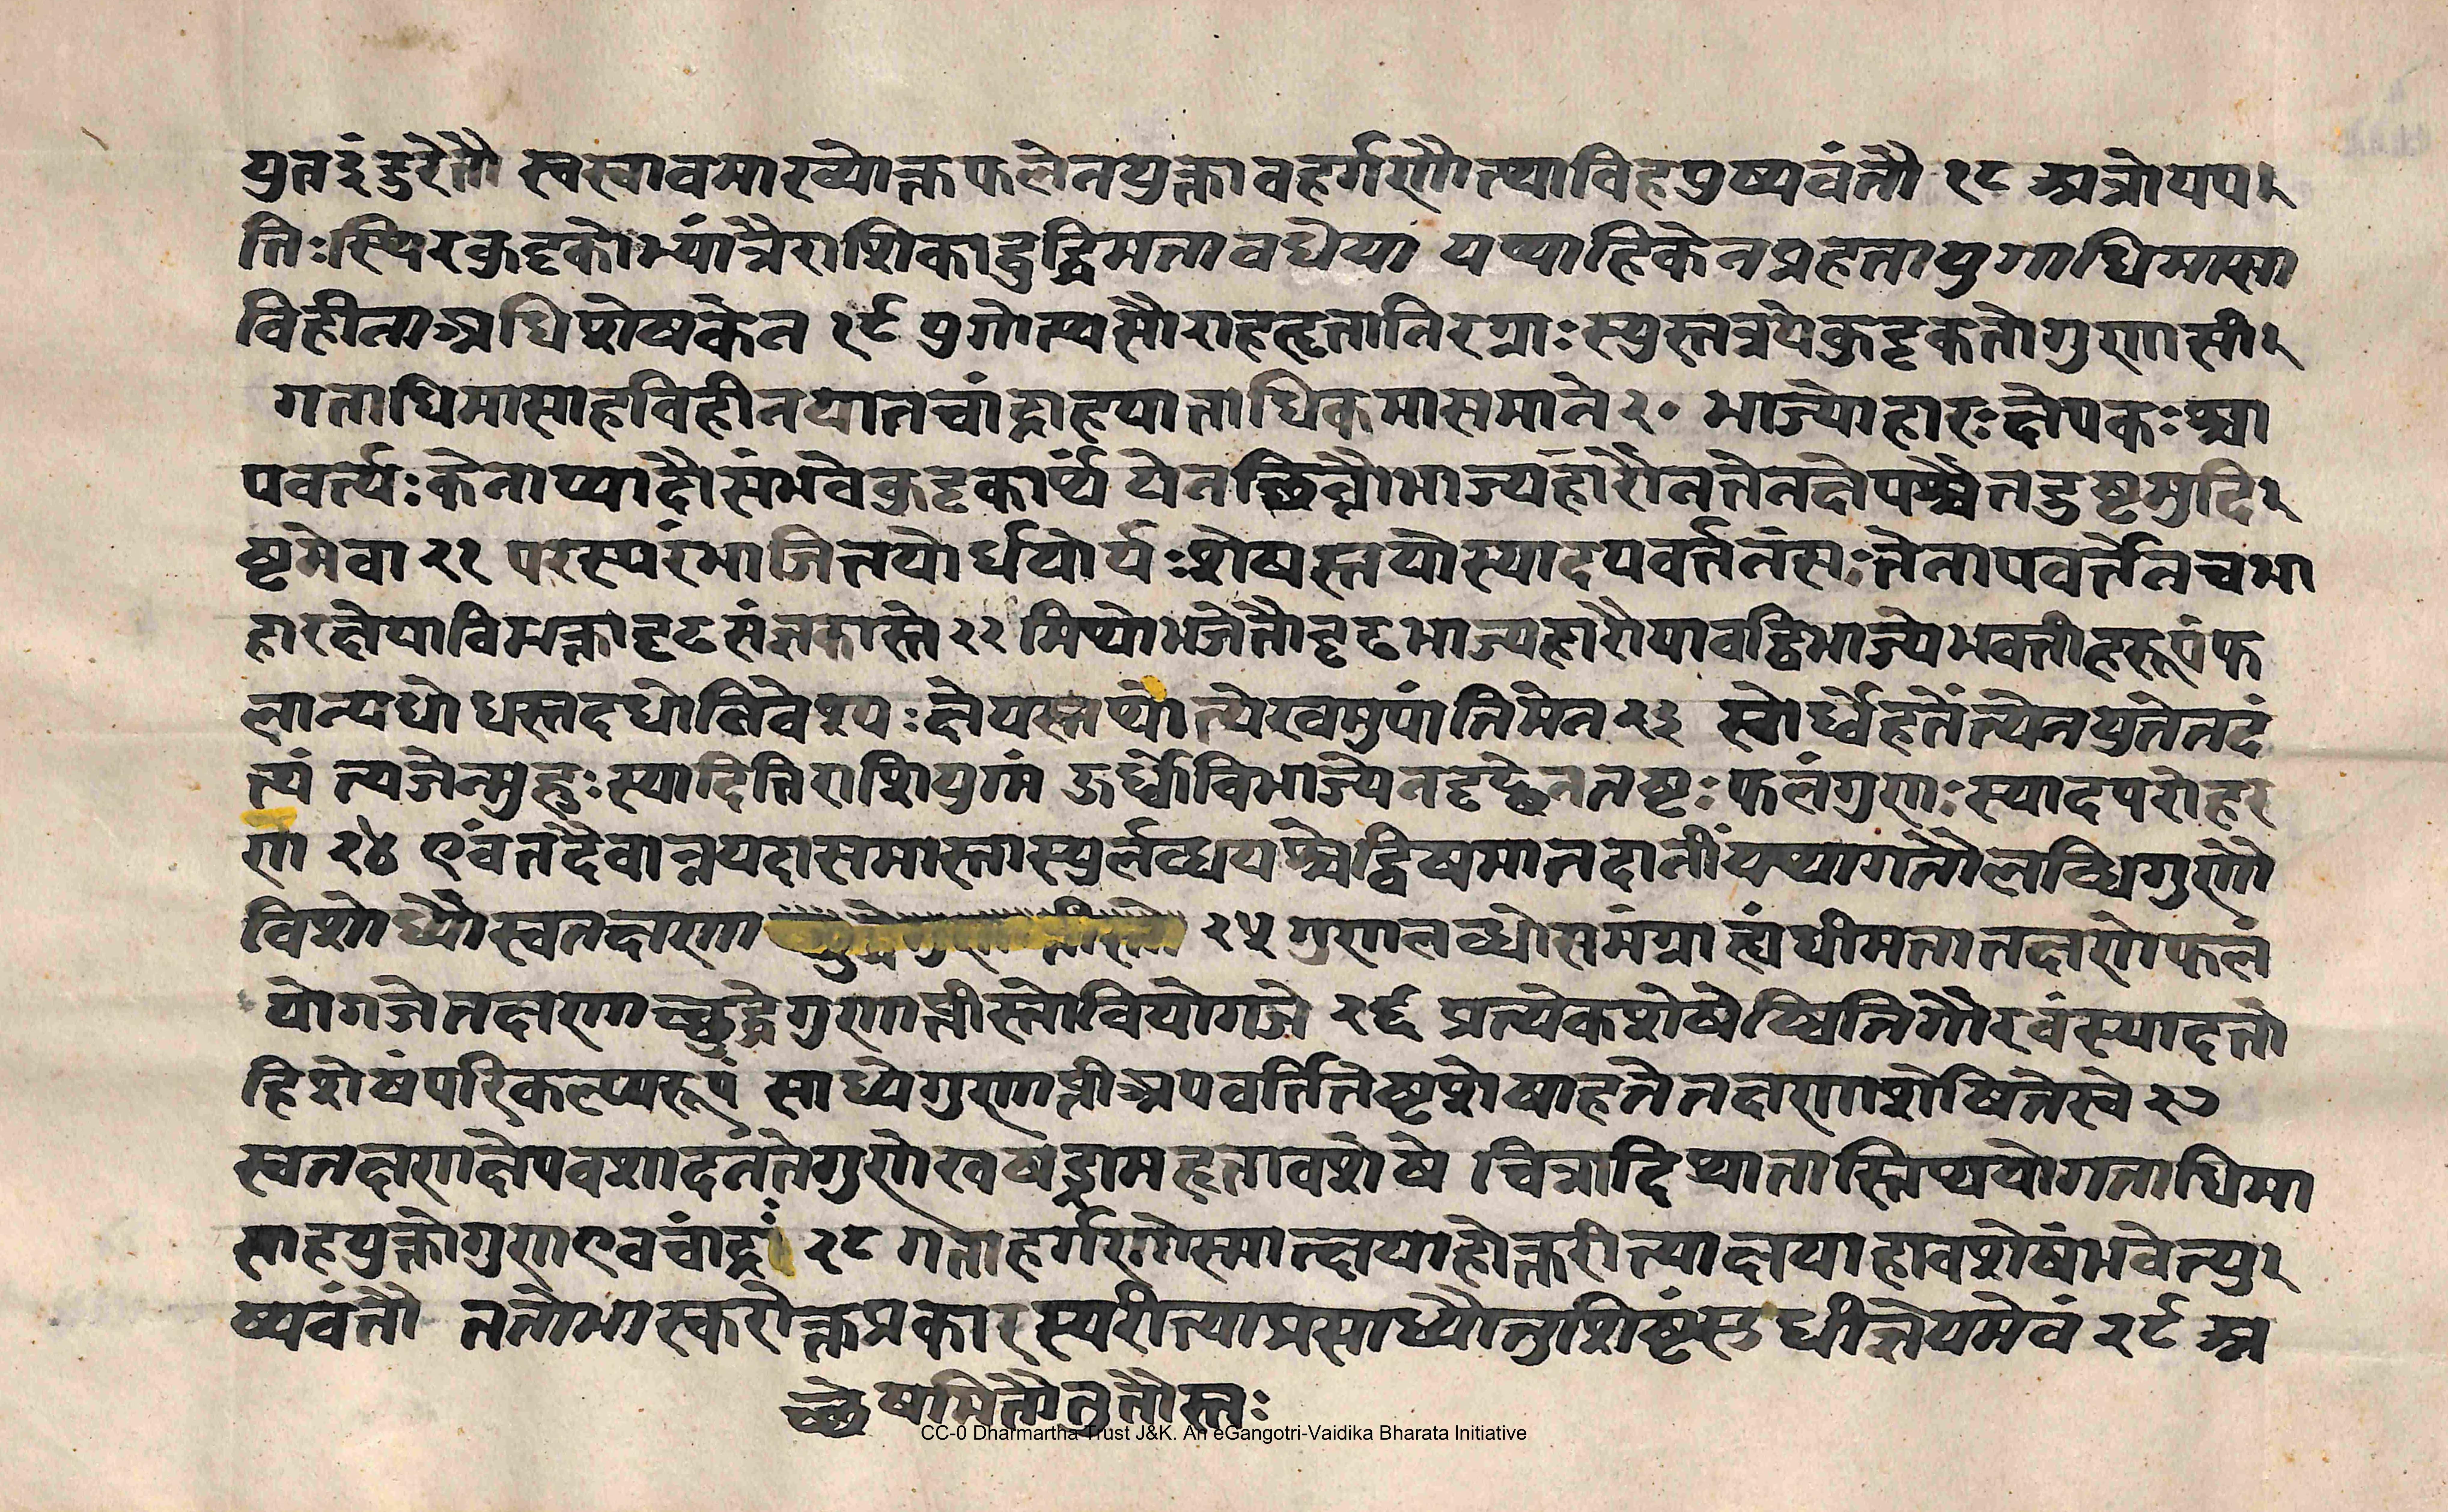 युतदं दुरेतौ स्वस्वावमाख्योक्तफलेनयुक्तावहर्गणोत्थाविहपुष्पवंतौ १८ अत्रोपप
त्तिःस्थिरकुट्टकोभ्यांत्रैराशिकाद्बुद्धिमतावधेया यथाहिकेनप्रहतायुगाधिमासा
विहीनाअधिशेषकेन १९ युगोत्थसौराहहृतानिरग्राःस्युस्तत्रयेकुट्टकतोगुणाप्ती
गताधिमासाहविहीनयातचांद्राहयाताधिकमासमाने २० भाज्योहारःक्षेपकःश्चा
पवर्त्यःकेनाप्यादौसंभवेकुट्टकार्थं येनच्छिन्नौभाज्यहारौनतेनक्षेपश्चैतद्दुष्टमुदि
ष्टमेवा २१ परस्परंभाजितयोर्धयोर्यःशेषस्तयोस्यादपवर्त्तनंसःतेनापवर्त्तेनचभा
हारक्षेपाविभक्तादृढसंज्ञकास्ते २२ मिथोभजेत्तौदृढभाज्यहारौयावद्विभाज्येभवतीहरूपंफ
लान्यधोधस्तदधोनिवेश्यःक्षेपस्तथोंत्येखमुपांतिमेन २३ स्वोर्ध्वेहतेंत्येनयुतेतदं
त्यं त्यजेन्मुहुःस्यादितिराशियुग्मं ऊर्ध्वोविभाज्येनदृढेनतष्टःफलंगुणःस्यादपरोहरे
ण २४ एवंतदैवात्रयदासमास्तास्युर्लब्धयश्चेद्विषमातदानींयथागतौलब्धिगुणौ
विशोध्यौस्वतक्षणा २५ गुणलब्धोसमंग्राह्यंधीमतातक्षणेफलं
योगजेतक्षणाच्छुद्धेगुणाप्तीस्तोवियोगजे २६ प्रत्येकशेषेष्वितिगौरवंस्यादतो
हिशेषंपरिकल्प्यरूपं साध्येगुणाप्तीअपवर्त्तितेष्टशेषाहतेतक्षणशेषितेस्वे २७
स्वतक्षणक्षेपवशादतंतेगुणेखषड्रामहृतावशेषे चैत्रादियातास्तिथयोगताधिमा
साहयुक्तोगुणएवचांद्रां २८ गताहर्गणोस्मात्क्षयाहोक्तरीत्याक्षयाहावशेषंभवेत्पु
ष्पवंतौ ततोभास्करोक्तप्रकारस्यरीत्याप्रसाध्यौतुशिष्टंसुधीज्ञेयमेवं २९ अ
च्छेषमितौनुतौस्तः
CC-0 Dharmartha Trust J&K. An eGangotri-Vaidika Bharata Initiative